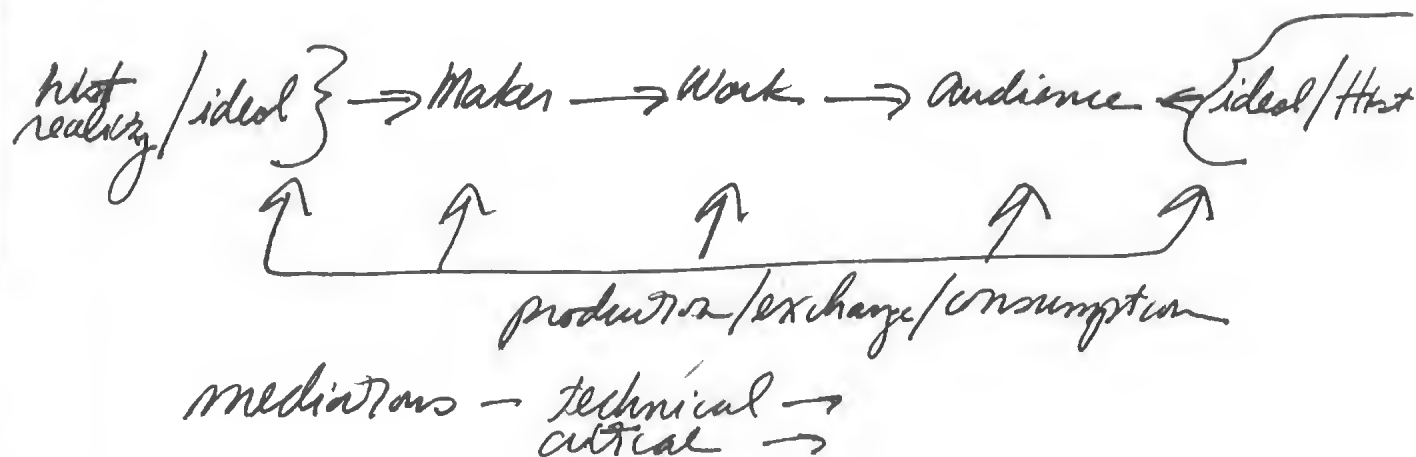 hist
reality/ideal } → Maker → Work → Audience ← { ideal/Hist
production/exchange/consumption
mediations – technical →
critical →